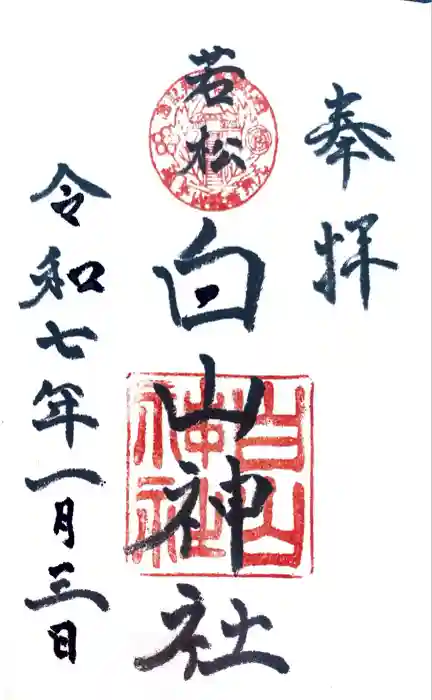 奉拝
若松
白山神社
白山
神社
令和七年一月三日